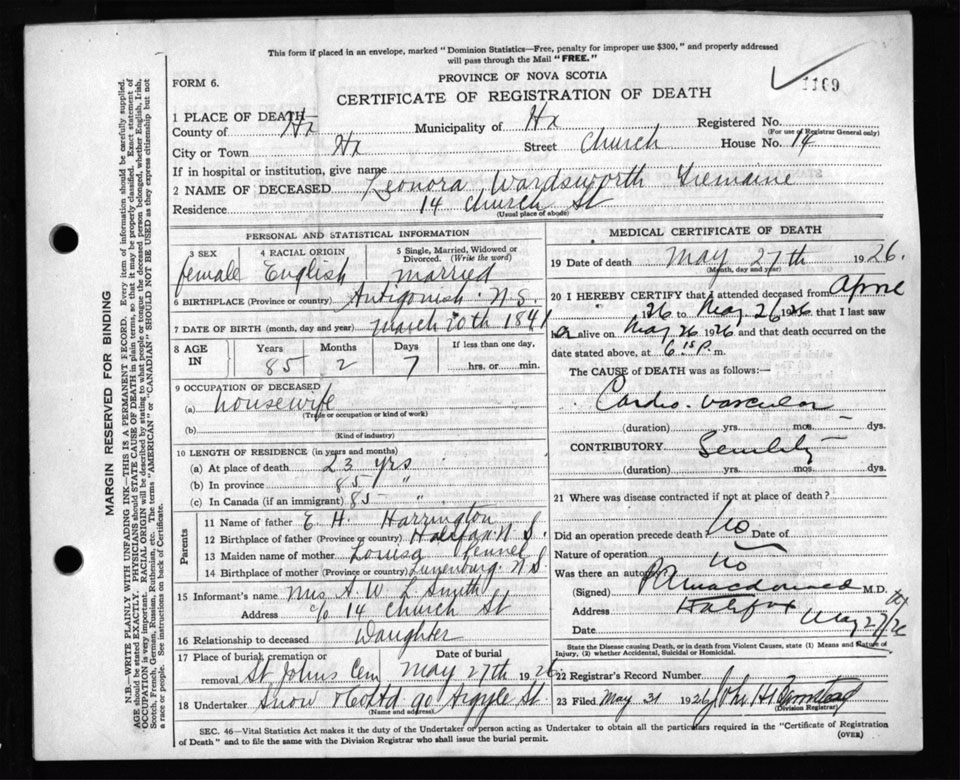 This form if placed in an envelope, marked "Dominion Statistics—Free, penalty for improper use $300," and properly addressed
will pass through the Mail "FREE."
1169
FORM 6.
PROVINCE OF NOVA SCOTIA
CERTIFICATE OF REGISTRATION OF DEATH
1 PLACE OF DEATH
County of Hx Municipality of Hx Registered No.
(For use of Registrar General only)
City or Town Hx Street Church House No. 14
If in hospital or institution, give name
2 NAME OF DECEASED Leonora Wardsworth Tremaine
Residence 14 Church St
(Usual place of abode)
PERSONAL AND STATISTICAL INFORMATION
3 SEX 4 RACIAL ORIGIN 5 Single, Married, Widowed or Divorced. (Write the word)
female English married
6 BIRTHPLACE (Province or country) Antigonish N.S.
7 DATE OF BIRTH (month, day and year) March 20th 1841
8 AGE IN Years Months Days If less than one day,
85 2 7 hrs. or min.
9 OCCUPATION OF DECEASED
(a) housewife
(Trade or occupation or kind of work)
(b)
(Kind of industry)
10 LENGTH OF RESIDENCE (in years and months)
(a) At place of death 23 yrs
(b) In province 85 "
(c) In Canada (if an immigrant) 85 "
Parents
11 Name of father E. H. Harrington
12 Birthplace of father (Province or country) Halifax N.S.
13 Maiden name of mother Louisa
14 Birthplace of mother (Province or country) Lunenburg N.S.
15 Informant's name Mrs A. W. L Smith
Address c/o 14 Church St
16 Relationship to deceased Daughter
17 Place of burial, cremation or Date of burial
removal St Johns Cem May 27th 1926
18 Undertaker Snow & Co Ltd 90 Argyle St
(Name and address)
MEDICAL CERTIFICATE OF DEATH
19 Date of death May 27th 1926.
(Month, day and year)
20 I HEREBY CERTIFY that I attended deceased from April
1926 to May 26 1926 that I last saw
her alive on May 26 1926 and that death occurred on the
date stated above, at 6 15 P. m.
The CAUSE of DEATH was as follows:—
Cardio-vascular
(duration) yrs. mos. dys.
CONTRIBUTORY Senility
(duration) yrs. mos. dys.
21 Where was disease contracted if not at place of death?
Did an operation precede death No Date of
Nature of operation
Was there an autopsy No
(Signed) Macdonald M.D.
Address Halifax
Date May 27/26
State the Disease causing Death, or in death from Violent Causes, state (1) Means and Nature of
Injury, (2) whether Accidental, Suicidal or Homicidal.
22 Registrar's Record Number
23 Filed May 31 1926 John H
(Division Registrar)
SEC. 46—Vital Statistics Act makes it the duty of the Undertaker or person acting as Undertaker to obtain all the particulars required in the "Certificate of Registration
of Death" and to file the same with the Division Registrar who shall issue the burial permit.
(OVER)
MARGIN RESERVED FOR BINDING
N.B.—WRITE PLAINLY WITH UNFADING INK—THIS IS A PERMANENT RECORD. Every item of information should be carefully supplied.
AGE should be stated EXACTLY. PHYSICIANS should STATE CAUSE OF DEATH in plain terms, so that it may be properly classified. Exact statement of
OCCUPATION is very important. RACIAL ORIGIN will be described by stating to what people or tongue the deceased person belonged, whether English, Irish,
Scotch, French, German, Russian, Ruthenian, etc. The terms "AMERICAN" or "CANADIAN" SHOULD NOT BE USED as they express citizenship but not
a race or people. See instructions on back of Certificate.